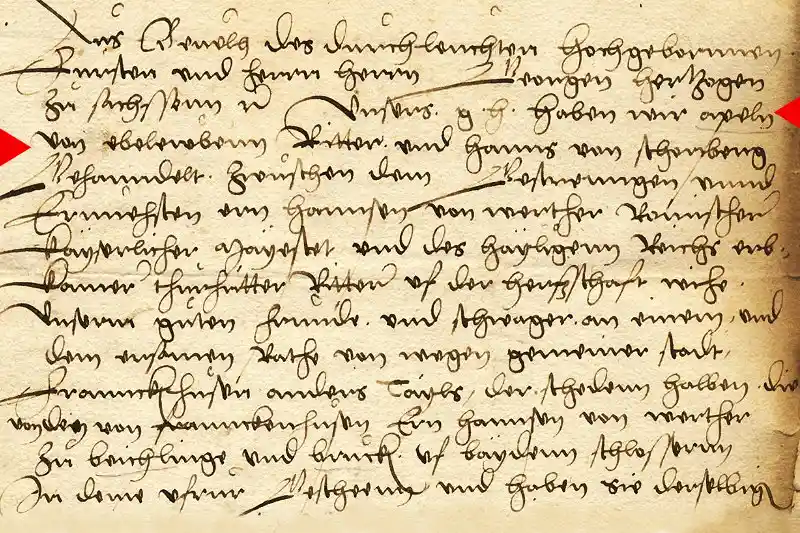 Aus Bevelh des durchleuchten hochgebornnen
Fursten und herrn herrn Georigen hertzogen
zu sachssenn Unsers g. h. haben wir apeln
von ebelewbenn Ritter und hanns von
Gehanndelt. zwuschen dem Gestrenngen unnd
Ernvehsten ern hannsen von werther Romischer
kayserlicher Mayestet und des hayligenn Reichs erb
kamer thurhutter Ritter uf der herschaft wihe
Unserm guten frunde. und schwager. an einem. und
dem ersamen Rathe von wegen gemeiner stadt
Franncknhusen anders Tayls, der schedenn halben die
von den von franncken husen Ern hannsen von werther
zu beichlinge und bruck. uf baydenn schlosserun
In deme ufrur Gescheenn und haben sie derselbig